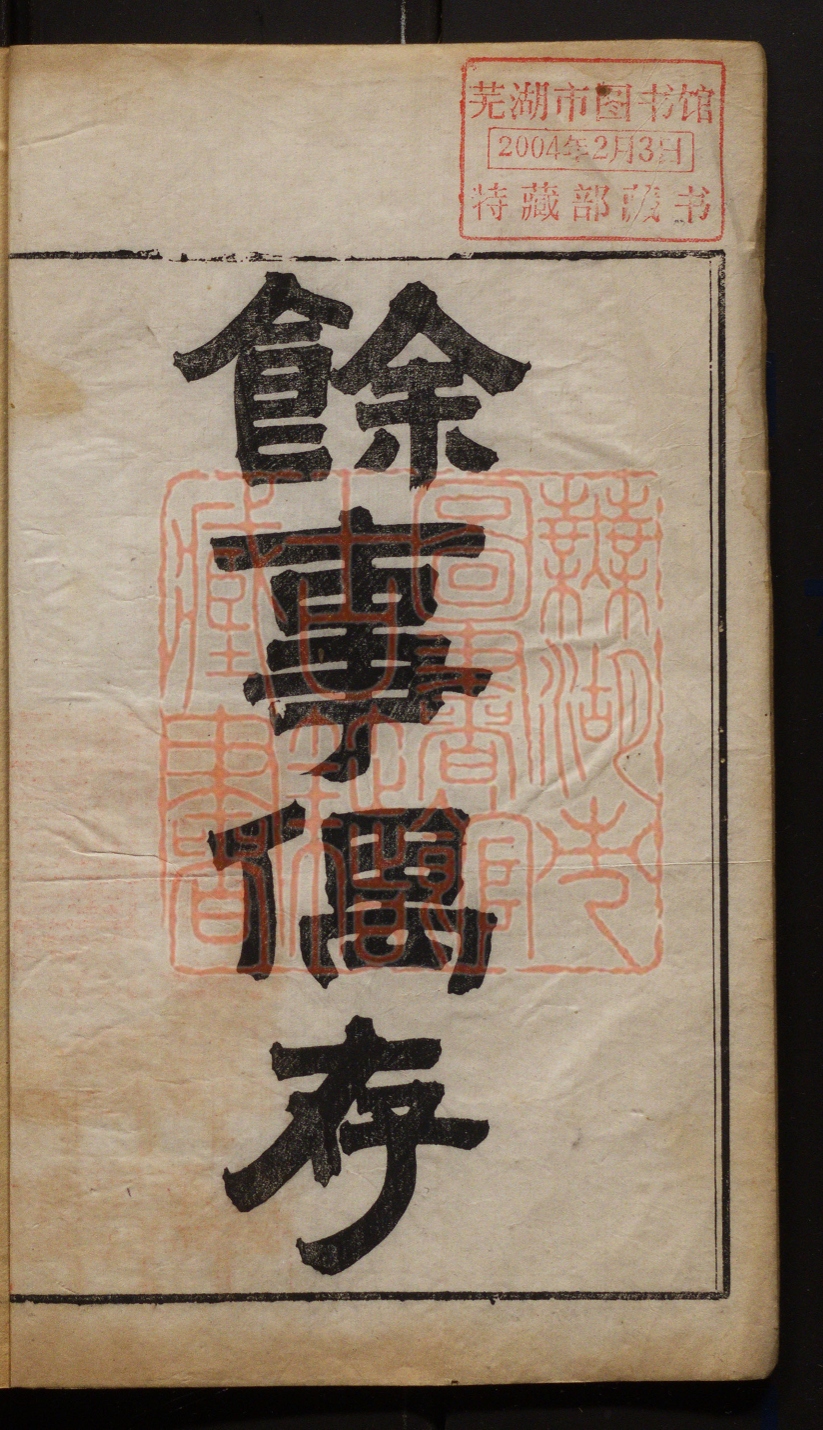 餘事偶存
芜湖市图书馆
2004年2月3日
特藏部藏书
蕪湖市
圖書館
古籍
藏書